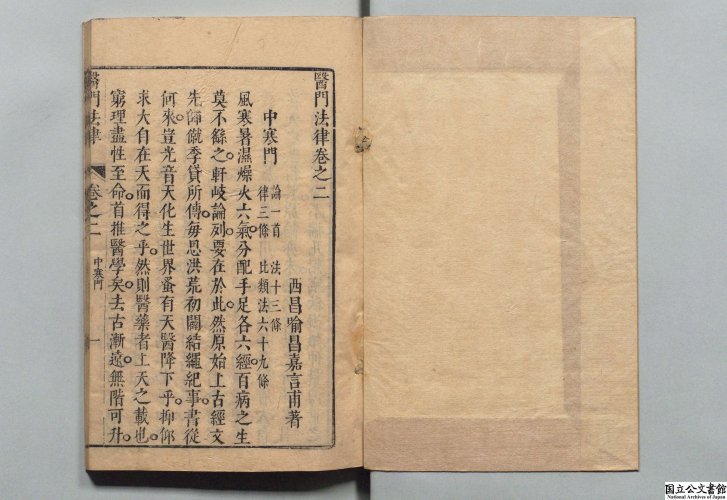 醫門法律卷之二
西昌喻昌嘉言甫著
中寒門 論一首 法十三條
律三條 比類法六十九條
風寒暑濕燥火六氣分配手足各六經百病之生
莫不繇之軒岐論列要在於此然原始上古經文
先師僦季貸所傳每思洪荒初闢結繩紀事書從
何來豈光音天化生世界蚤有天醫降下乎抑仰
求大自在天而得之乎然則醫藥者上天之載也
窮理盡性至命首推醫學矣去古漸遠無階可升
醫門法律 卷之二 中寒門 一
国立公文書館
National Archives of Japan